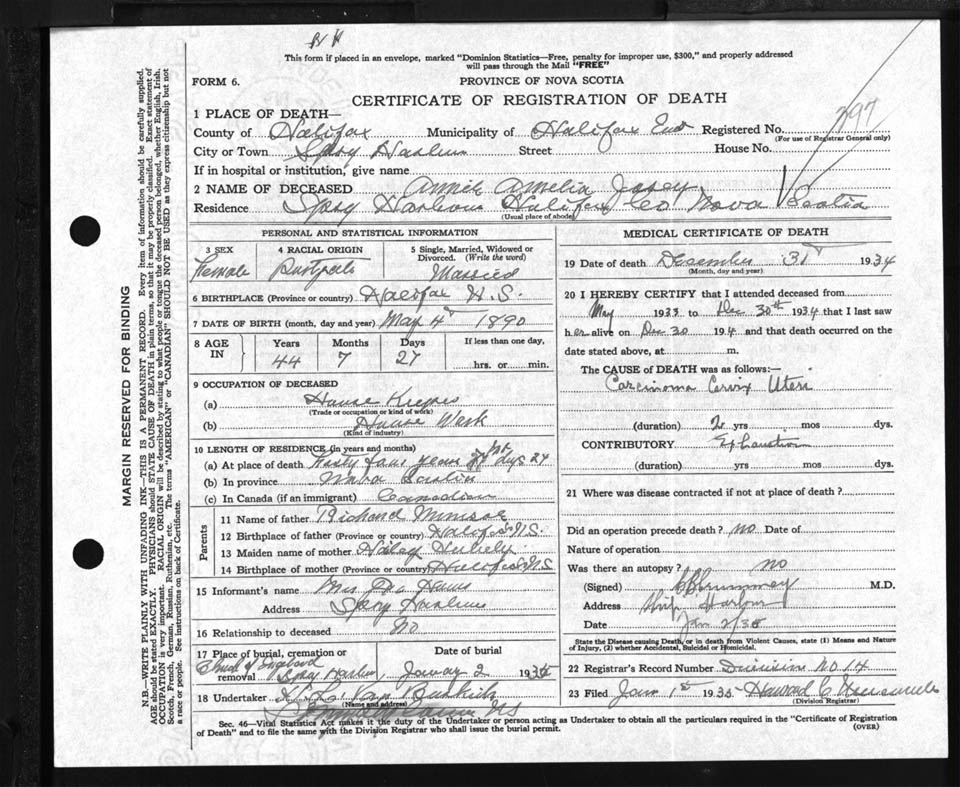 This form if placed in an envelope, marked "Dominion Statistics—Free, penalty for improper use, $300," and properly addressed
will pass through the Mail "FREE"
FORM 6.
PROVINCE OF NOVA SCOTIA
CERTIFICATE OF REGISTRATION OF DEATH
1 PLACE OF DEATH—
County of Halifax Municipality of Halifax Registered No. 397
(For use of Registrar General only)
City or Town Spry Street House No.
If in hospital or institution, give name
2 NAME OF DECEASED Annie Amelia
Residence Spry Harbour Halifax Co Nova Scotia
(Usual place of abode)
PERSONAL AND STATISTICAL INFORMATION
3 SEX 4 RACIAL ORIGIN 5 Single, Married, Widowed or Divorced. (Write the word)
Female Married
6 BIRTHPLACE (Province or country) Halifax N.S.
7 DATE OF BIRTH (month, day and year) May 4 1890
8 AGE IN Years Months Days If less than one day,
44 7 27 hrs. or min.
9 OCCUPATION OF DECEASED
(a) House
(Trade or occupation or kind of work)
(b) House Work
(Kind of industry)
10 LENGTH OF RESIDENCE (in years and months)
(a) At place of death years
(b) In province Nova Scotia
(c) In Canada (if an immigrant) Canadian
Parents
11 Name of father Richard
12 Birthplace of father (Province or country) Halifax N.S.
13 Maiden name of mother
14 Birthplace of mother (Province or country) Halifax N.S.
15 Informant's name Mrs
Address Spry
16 Relationship to deceased No
17 Place of burial, cremation or removal Date of burial
Church of England Spry January 2 193
18 Undertaker
(Name and address)
N.S.
MEDICAL CERTIFICATE OF DEATH
19 Date of death December 31 1934
(Month, day and year)
20 I HEREBY CERTIFY that I attended deceased from
May 1933 to Dec 30th 1934 that I last saw
her alive on Dec 30 194 and that death occurred on the
date stated above, at m.
The CAUSE of DEATH was as follows:—
Carcinoma Cervix Uteri
(duration) 2 yrs mos dys.
CONTRIBUTORY Exhaustion
(duration) yrs mos dys.
21 Where was disease contracted if not at place of death?
Did an operation precede death? no. Date of
Nature of operation
Was there an autopsy? no
(Signed) M.D.
Address Ship Harbour
Date Jan 2/35
State the Disease causing Death, or in death from Violent Causes, state (1) Means and Nature
of Injury, (2) whether Accidental, Suicidal or Homicidal.
22 Registrar's Record Number Division No 14
23 Filed Jan 1st 1935 Howard C
(Division Registrar)
Sec. 46—Vital Statistics Act makes it the duty of the Undertaker or person acting as Undertaker to obtain all the particulars required in the "Certificate of Registration
of Death" and to file the same with the Division Registrar who shall issue the burial permit.
(OVER)
MARGIN RESERVED FOR BINDING
N.B.—WRITE PLAINLY WITH UNFADING INK—THIS IS A PERMANENT RECORD. Every item of information should be carefully supplied.
AGE should be stated EXACTLY. PHYSICIANS should STATE CAUSE OF DEATH in plain terms, so that it may be properly classified. Exact statement of
OCCUPATION is very important. RACIAL ORIGIN will be described by stating to what people or tongue the deceased person belonged, whether English, Irish,
Scotch, French, German, Russian, Ruthenian, etc. The terms "AMERICAN" or "CANADIAN" SHOULD NOT BE USED as they express citizenship but not
a race or people. See instructions on back of Certificate.